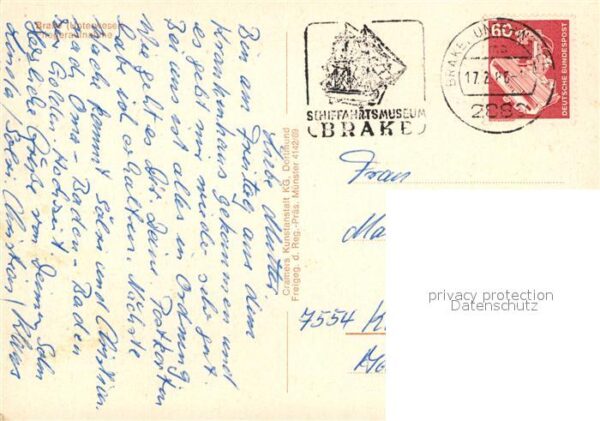 Brake (Unterweser)
Fliegeraufnahme
Liebe Mutter!
Bin am
Freitag aus dem
Krankenhaus gekommen und
es geht mir wieder sehr gut.
Bei uns ist alles in Ordnung
Wie geht es Dir. Deine Postkarten
habe ich erhalten. Nächste
Woche kommt Selin und Christian
nach Oma - Baden-Baden
zur Golden Hochzeit
Herzliche Grüße von Deinem Sohn
Christian / Klaus
Cramers Kunstanstalt KG, Dortmund
Freigeg. d. Reg.-Präs. Münster 4142/69
SCHIFFAHRTSMUSEUM
(BRAKE)
BRAKE, UN
17.2.86
2880
60
DEUTSCHE BUNDESPOST
Frau
Ma
7554 K
privacy protection
Datenschutz